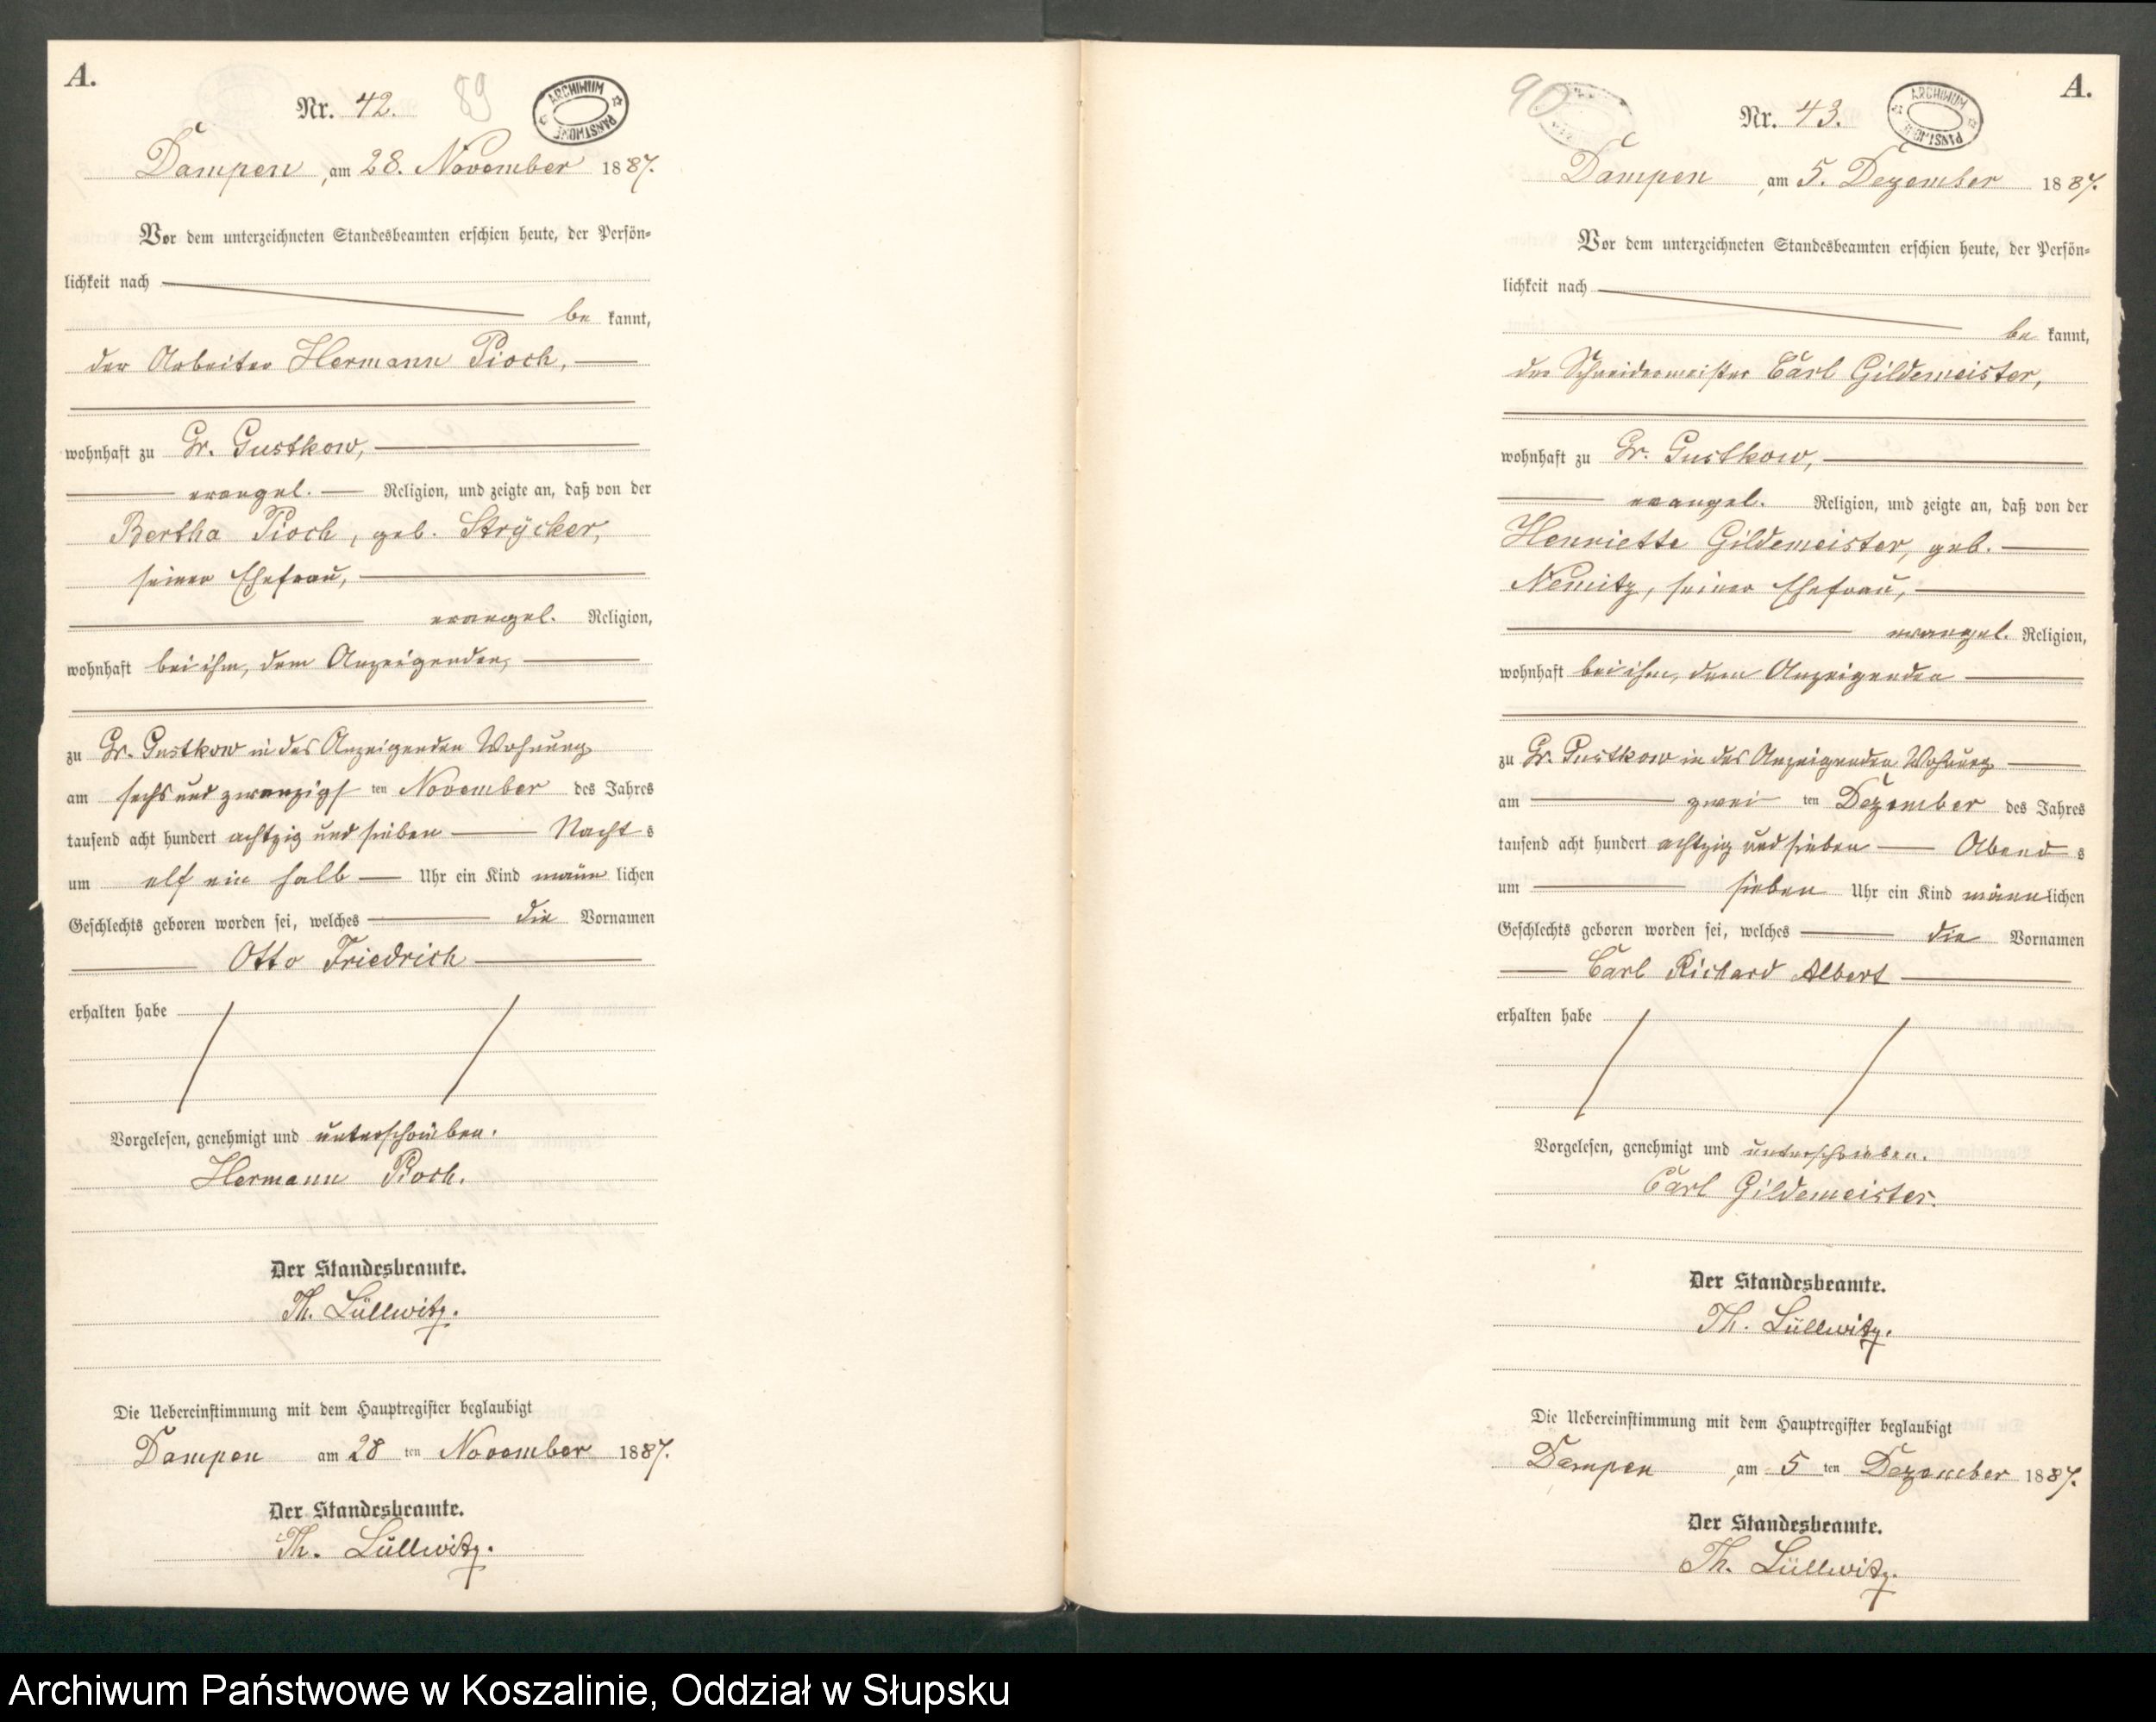 A.
Nr. 42.
89
ARCHIWUM PAŃSTWOWE
Dampen, am 28. November 1887.
Vor dem unterzeichneten Standesbeamten erschien heute, der Persön-
lichkeit nach
be kannt,
der Arbeiter Hermann Pioch,
wohnhaft zu Gr. Gustkow,
evangel. Religion, und zeigte an, daß von der
Bertha Pioch, geb. Strÿcker,
seiner Ehefrau,
evangel. Religion,
wohnhaft bei ihm, dem Anzeigenden,
zu Gr. Gustkow in des Anzeigenden Wohnung
am sechs und zwanzigs ten November des Jahres
tausend acht hundert achtzig und sieben Nacht s
um elf ein halb Uhr ein Kind männ lichen
Geschlechts geboren worden sei, welches die Vornamen
Otto Friedrich
erhalten habe
Vorgelesen, genehmigt und unterschrieben.
Hermann Pioch.
Der Standesbeamte.
Th. Lüllwitz.
Die Uebereinstimmung mit dem Hauptregister beglaubigt
Dampen am 28 ten November 1887.
Der Standesbeamte.
Th. Lüllwitz.
90
A.
Nr. 43.
ARCHIWUM PAŃSTWOWE
Dampen, am 5. Dezember 1887.
Vor dem unterzeichneten Standesbeamten erschien heute, der Persön-
lichkeit nach
be kannt,
der Schneidermeister Carl Gildemeister,
wohnhaft zu Gr. Gustkow,
evangel. Religion, und zeigte an, daß von der
Henriette Gildemeister, geb.
Nemitz, seiner Ehefrau,
evangel. Religion,
wohnhaft bei ihm, dem Anzeigenden
zu Gr. Gustkow in des Anzeigenden Wohnung
am zwei ten Dezember des Jahres
tausend acht hundert achtzig und sieben Abend s
um sieben Uhr ein Kind männ lichen
Geschlechts geboren worden sei, welches die Vornamen
Carl Richard Albert
erhalten habe
Vorgelesen, genehmigt und unterschrieben.
Carl Gildemeister.
Der Standesbeamte.
Th. Lüllwitz.
Die Uebereinstimmung mit dem Hauptregister beglaubigt
Dampen, am 5 ten Dezember 1887.
Der Standesbeamte.
Th. Lüllwitz.
Archiwum Państwowe w Koszalinie, Oddział w Słupsku